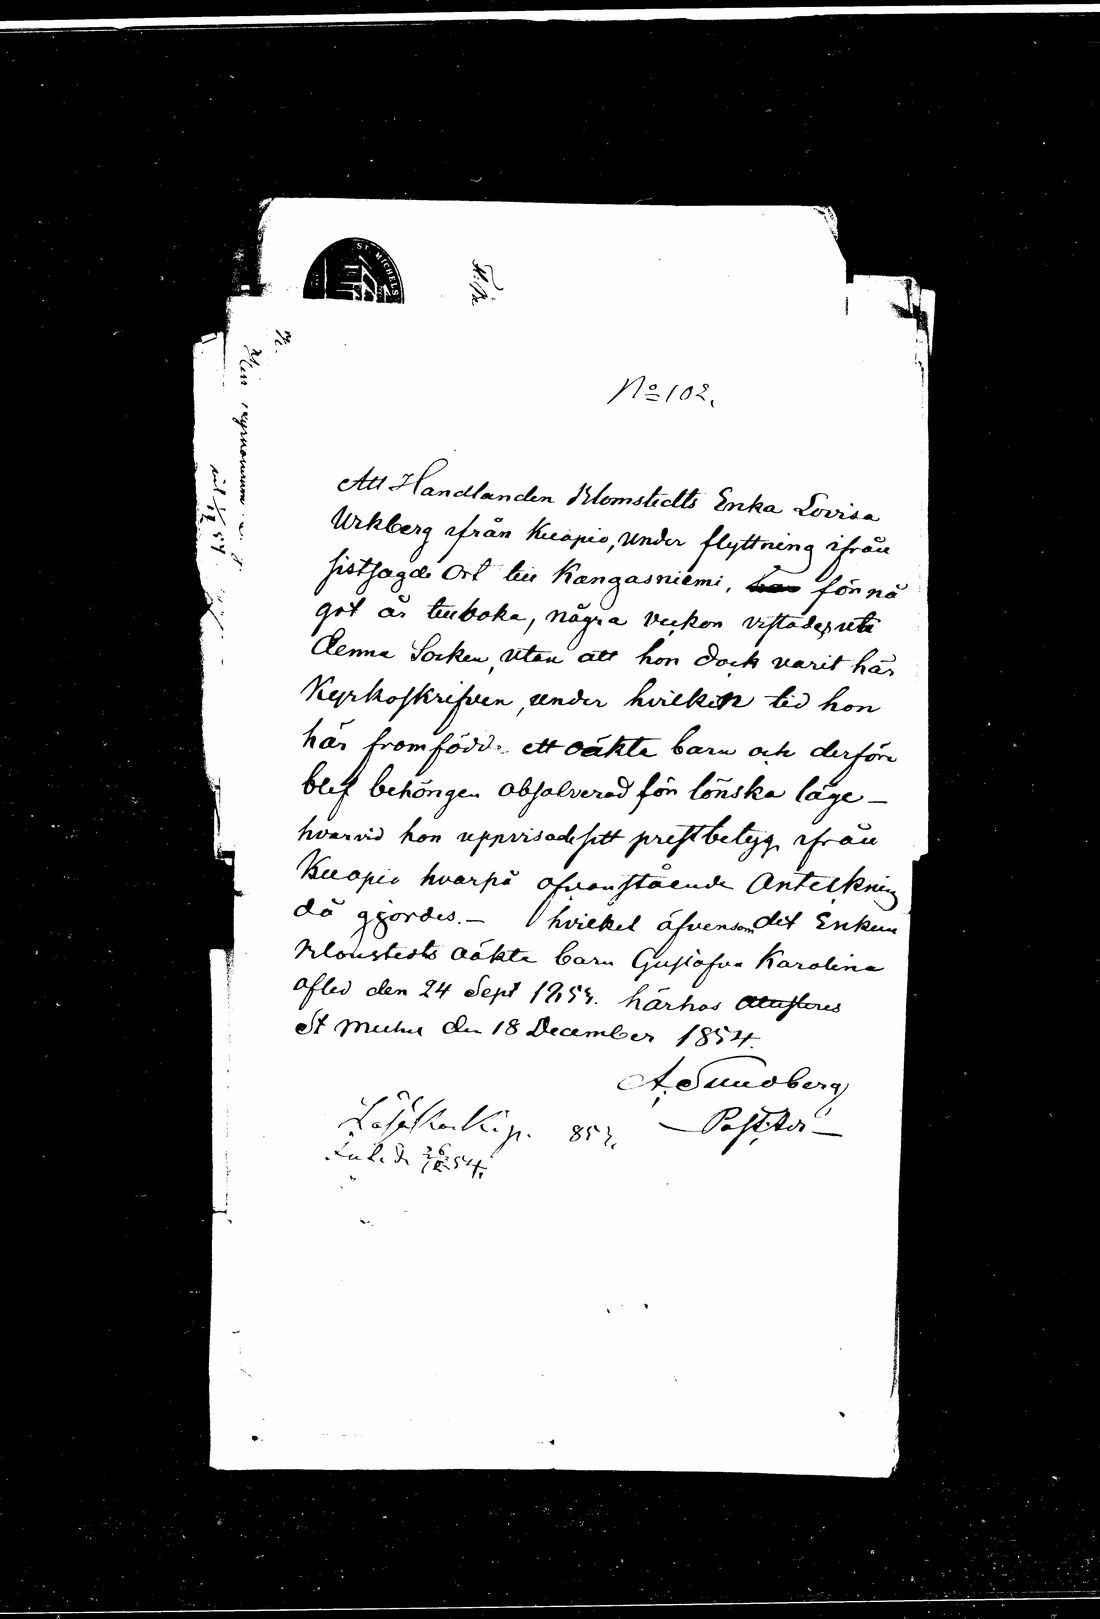 ST. MICHELS
No 102.
Att Handlanden Blomstedts Enka Lovisa
Urkberg ifrån Kuopio, under flyttning ifrån
sistsagde Ort till Kangasniemi, för nå
got år tillbaka, några veckor vistades uti
denna Socken, utan att hon dock varit här
Kyrkoskrifven, under hvilken tid hon
här framfödde ett oäkta barn och derföre
blef behörigen absolverad för lönska läge –
hvarvid hon uppvisade sitt prestbetyg ifrån
Kuopio hvarpå ofvanstående Anteckning
då gjordes. – hvilket äfvensom det Enkan
Blomstedts oäkta barn Gustafva Karolina
afled den 24 Sept 1853. härhos
St Michel den 18 December 1854.
A. Sundberg
Past:
853.
26/12 54.